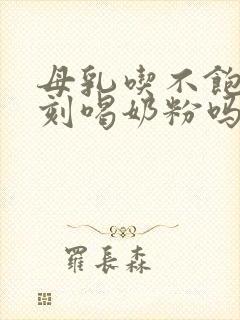 母乳喫不飽
刻喝奶粉吗
羅長森